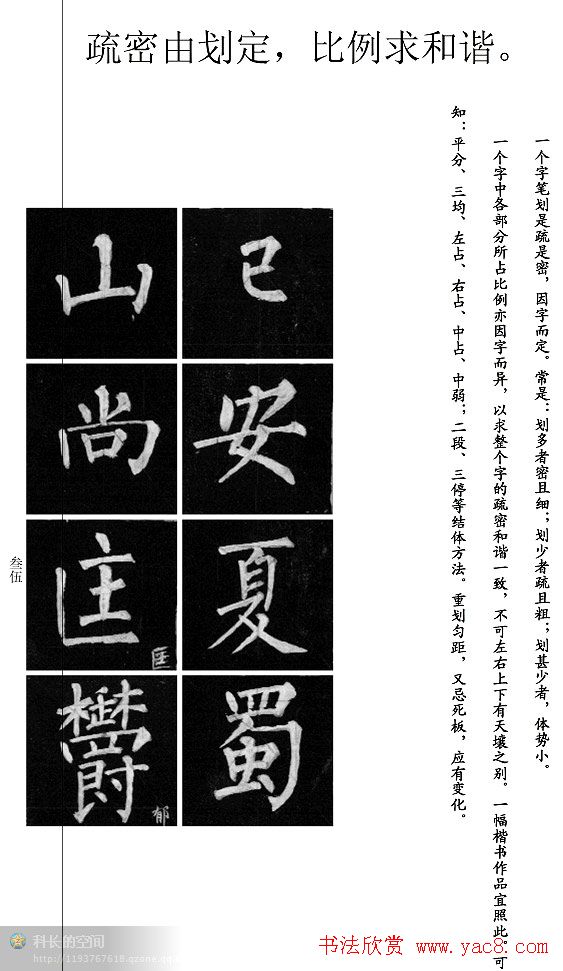 疏密由划定，比例求和谐。
一个字笔划是疏是密，因字而定。常是：划多者密且细；划少者疏且粗；划甚少者，体势小。
一个字中各部分所占比例亦因字而异，以求整个字的疏密和谐一致，不可左右上下有天壤之别。一幅楷书作品宜照此。可
知：平分、三均、左占、右占、中占、中弱；二段、三停等结体方法。重划匀距，又忌死板，应有变化。
已
安
夏
蜀
山
尚
匡
匡
鬱
郁
叁伍
科长的空间
http://1193767618.qzone.qq.co
书法欣赏 www.yac8.com